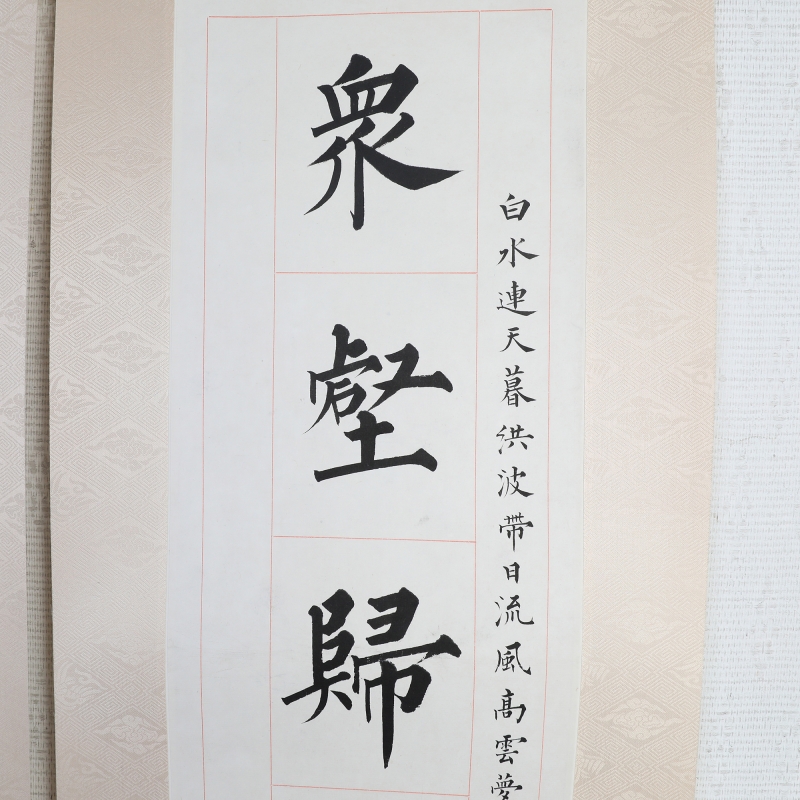 白水連天暮洪波帶日流風高雲夢
衆壑歸